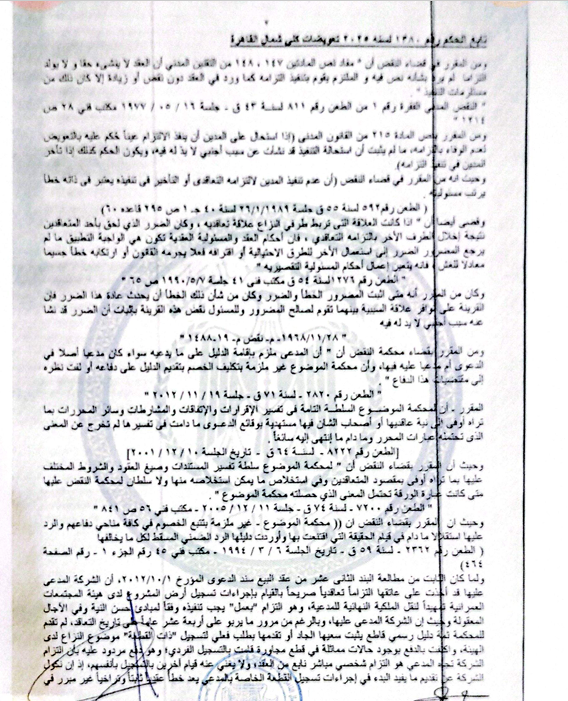 تابع الحكم رقم ١٣٨٠ لسنة ٢٠٢٥ تعويضات كلى شمال القاهرة
ومن المقرر في قضاء النقض أن " مفاد نص المادتين ١٤٧، ١٤٨ من التقنين المدني أن العقد لا ينشيء حقا ولا يولد
التزاما لم يرد بشأنه نص فيه و الملتزم يقوم بتنفيذ التزامه كما ورد في العقد دون نقض أو زيادة إلا كان ذلك من
مستلزمات التنفيذ "
" النقض المدني الفقرة رقم ١ من الطعن رقم ٨١١ لسنة ٤٣ ق - جلسة ١٦ / ٠٥ / ١٩٧٧ مكتب فني ٢٨ ص
١٢١٤ "
ومن المقرر بنص المادة ٢١٥ من القانون المدني (إذا استحال على المدين أن ينفذ الالتزام عيناً حُكم عليه بالتعويض
لعدم الوفاء بالتزامه، ما لم يثبت أن استحالة التنفيذ قد نشأت عن سبب أجنبي لا يد له فيه، ويكون الحكم كذلك إذا تأخر
المدين في تنفيذ التزامه)
وحيث انه من المقرر في قضاء النقض (أن عدم تنفيذ المدين لالتزامه التعاقدى أو التأخير في تنفيذه يعتبر في ذاته خطأ
يرتب مسئوليته
( الطعن رقم ٥٩٢ لسنة ٥٥ ق جلسة ١٩٨٩/١/٢٦ لسنة ٤٠ جـ ١ ص ٢٩٥ قاعدة ٦٠)
وقضى أيضا أن " اذا كانت العلاقة التى تربط طرفي النزاع علاقة تعاقديه ، وكان الضرر الذي لحق بأحد المتعاقدين
نتيجة إخلال الطرف الأخر بالتزامه التعاقدي ، فإن أحكام العقد والمسئولية العقدية تكون هي الواجبة التطبيق ما لم
يرجع المضرور الضرر إلى استعمال الأخر للطرق الاحتيالية أو اقترافه فعلا يجرمه القانون أو ارتكابه خطأ جسيما
معادلا للغش ، فإنه يتعين إعمال أحكام المسئولية التقصيريه "
" الطعن رقم ٢٧٦ لسنة ٥٤ ق مكتب فني ٤١ جلسة ١٩٩٠/٥/٧ ص ٦٥ "
وكان من المقرر أنه متى اثبت المضرور الخطأ والضرر وكان من شأن ذلك الخطأ أن يحدث عادة هذا الضرر فإن
القرينة على توافر علاقة السببية بينهما تقوم لصالح المضرور وللمسئول نقض هذه القرينة بإثبات أن الضرر قد نشأ
عنه سبب أجنبي لا يد له فيه
" ١٩٦٨/١١/٢٨ -م- نقض م-١٩-١٤٨٨ "
ومن المقرر بقضاء محكمة النقض أن " أن المدعى ملزم بإقامة الدليل على ما يدعيه سواء كان مدعيا أصلا في
الدعوى أم مدعيا عليه فيها، وأن محكمة الموضوع غير ملزمة بتكليف الخصم بتقديم الدليل على دفاعه أو لفت نظره
إلى مقتضيات هذا الدفاع " .
" الطعن رقم ٢٨٢٠ - لسنة ٧١ ق - جلسة ١٩ / ١١ / ٢٠١٢ "
المقرر - إن لمحكمة الموضوع السلطة التامة في تفسير الإقرارات والإتفاقات والمشارطات وسائر المحررات بما
تراه أوفى إلى نية عاقديها أو أصحاب الشأن فيها مستهدية بوقائع الدعوى ما دامت في تفسيرها لم تخرج عن المعنى
الذي تحتمله عبارات المحرر وما دام ما إنتهى إليه سائغاً.
[الطعن رقم ٨٢٢٢ - لسنة ٦٤ ق - تاريخ الجلسة ١٠ / ١٢ / ٢٠٠١]
وحيث أن المقرر بقضاء النقض أن " لمحكمة الموضوع سلطة تفسير المستندات وصيغ العقود والشروط المختلف
عليها بما تراه أوفى بمقصود المتعاقدين وفى استخلاص ما يمكن استخلاصه منها ولا سلطان لمحكمة النقض عليها
متى كانت عبارة الورقة تحتمل المعنى الذي حصلته محكمة الموضوع " .
" الطعن رقم ٧٢٠٠ - لسنة ٧٤ ق - جلسة ١١ / ١٢ / ٢٠٠٥ - مكتب فني ٥٦ ص ٨٤١ "
وحيث ان المقرر بقضاء النقض ان (( محكمة الموضوع - غير ملزمة بتتبع الخصوم في كافة مناحي دفاعهم والرد
عليها استقلالا ما دام في قيام الحقيقة التي اقتنعت بها وأوردت دليلها الرد الضمني المسقط لكل ما يخالفها
( الطعن رقم ٢٣٦٢ - لسنة ٥٩ ق - تاريخ الجلسة ٦ / ٣ / ١٩٩٤ - مكتب فني ٤٥ رقم الجزء ١ - رقم الصفحة
٤٦٤)
ولما كان الثابت من مطالعة البند الثاني عشر من عقد البيع سند الدعوى المؤرخ ٢٠١٢/١٠/١، أن الشركة المدعى
عليها قد أخذت على عاتقها التزاماً تعاقدياً صريحاً بالقيام بإجراءات تسجيل أرض المشروع لدى هيئة المجتمعات
العمرانية تمهيداً لنقل الملكية النهائية للمدعية، وهو التزام "بعمل" يجب تنفيذه وفقاً لمبادئ حسن النية وفي الآجال
المعقولة وحيث إن الشركة المدعى عليها، وبالرغم من مرور ما يربو على أربعة عشر عاماً على تاريخ التعاقد، لم تقدم
للمحكمة ثمة دليل رسمي قاطع يثبت سعيها الجاد أو تقدمها بطلب فعلي لتسجيل "ذات القطعة" موضوع النزاع لدى
الهيئة، واكتفت بالدفع بوجود حالات مماثلة في قطع مجاورة قامت بالتسجيل الفردي؛ وهو دفع مردود عليه بأن التزام
الشركة تجاه المدعي هو التزام شخصي مباشر نابع من العقد، ولا يغني عنه قيام آخرين بالتسجيل بأنفسهم، إذ إن نكول
الشركة عن تقديم ما يفيد البدء في إجراءات تسجيل القطعة الخاصة بالمدعي يعد خطأ عقدياً ثابتاً وتراخياً غير مبرر في